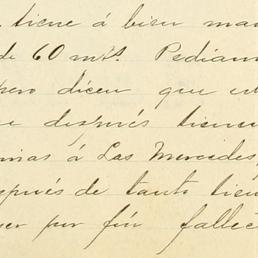 tiene á bien man
de 60 mts. Pedian
pero dicen que es
e después tienen
nias á Las Mercedes,
después de tanto tiem
er por fin fallec